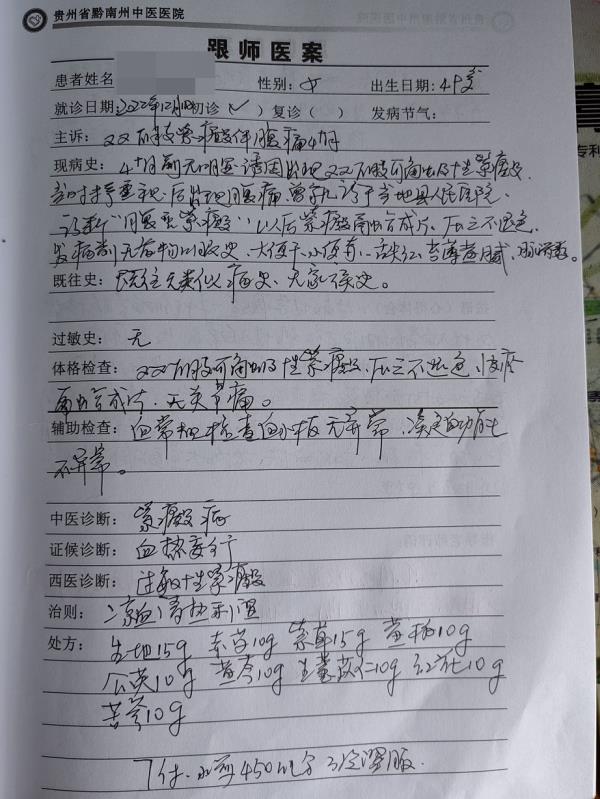 贵州省黔南州中医医院
跟师医案
患者姓名 性别：女 出生日期：49岁
就诊日期：2022年12月 初诊（✓）复诊（ ） 发病节气：
主诉：双下肢紫癜伴腹痛4个月
现病史：4个月前无明显诱因出现双下肢可触出血性紫癜，
当时未重视，后出现腹痛，曾就诊于当地县人民医院，
诊断"腹型紫癜"，以后紫癜融合成片，压之不退色，
发病前无药物 史，大便干，小便黄，舌尖红，苔薄黄腻，脉滑数。
既往史：既往无类似病史、无家族史。
过敏史：无
体格检查：双下肢可触出血性紫癜，压之不退色，皮疹
融合成片，无关节痛。
辅助检查：血常规检查血小板无异常，凝血功能
无异常。
中医诊断：紫癜病
证候诊断：血热妄行
西医诊断：过敏性紫癜
治则：凉血清热利湿
处方：生地15g 紫草10g 15g 黄柏10g
公英10g 黄芩10g 生薏苡仁10g 红花10g
苦参10g
7付，水煎450ml分3次温服。